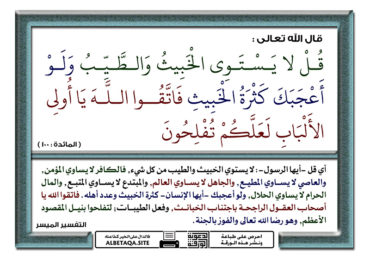 قال الله تعالى :
قُلْ لَا يَسْتَوِى الْخَبِيثُ وَالطَّيِّبُ وَلَوْ
أَعْجَبَكَ كَثْرَةُ الْخَبِيثِ فَاتَّقُوا اللَّهَ يَا أُولِى
الْأَلْبَابِ لَعَلَّكُمْ تُفْلِحُونَ
( المائدة : ١٠٠ )
أي قل -أيها الرسول-: لا يستوي الخبيث والطيب من كل شيء, فالكافر لا يساوي المؤمن,
والعاصي لا يساوي المطيع, والجاهل لا يساوي العالم, والمبتدع لا يساوي المتبع, والمال
الحرام لا يساوي الحلال, ولو أعجبك -أيها الإنسان- كثرة الخبيث وعدد أهله. فاتقوا الله يا
أصحاب العقول الراجحة باجتناب الخبائث, وفعل الطيبات؛ لتفلحوا بنيل المقصود
الأعظم, وهو رضا الله تعالى والفوز بالجنة.
التفسير الميسر
احرص على طباعة
ونشر هذه الورقة
فالدال على الخير كفاعله
ALBETAQA.SITE